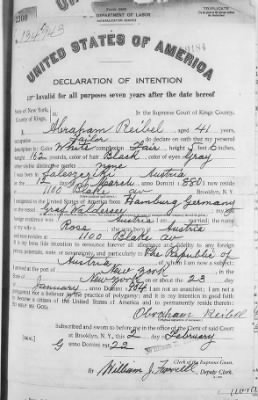 TRIPLICATE
DEPARTMENT OF LABOR
NATURALIZATION SERVICE
UNITED STATES OF AMERICA
DECLARATION OF INTENTION
Invalid for all purposes seven years after the date hereof
State of New York,
County of Kings,
I, Abraham Reibel, aged 41 years,
occupation Tailor, do declare on oath that my personal
description is: Color White, complexion Fair, height 5 feet 6 inches,
weight 162 pounds, color of hair Black, color of eyes Gray
other visible distinctive marks none
I was born in Austria
on the 12 day of March, anno Domini 1880; I now reside
at 1100 Blake Av, Brooklyn, N.Y.
I emigrated to the United States of America from Hamburg Germany
on the vessel Graf Waldersee; my last
foreign residence was Austria; I am married; the name
of my wife is Rosa; she was born in Austria
and now resides at 1100 Blake av
It is my bona fide intention to renounce forever all allegiance and fidelity to any foreign
prince, potentate, state, or sovereignty, and particularly to The Republic of
Austria, of whom I am now a subject;
I arrived at the port of New York, in the
State of New York, on or about the 23 day
of January, anno Domini 1904; I am not an anarchist; I am not a
polygamist nor a believer in the practice of polygamy; and it is my intention in good faith
to become a citizen of the United States of America and to permanently reside therein:
SO HELP ME GOD.
Abraham Reibel
Subscribed and sworn to before me in the office of the Clerk of said Court
at Brooklyn, N. Y., this 2 day of February
anno Domini 1922
Clerk of the Supreme Court.
By William J. Farrell, Clerk.